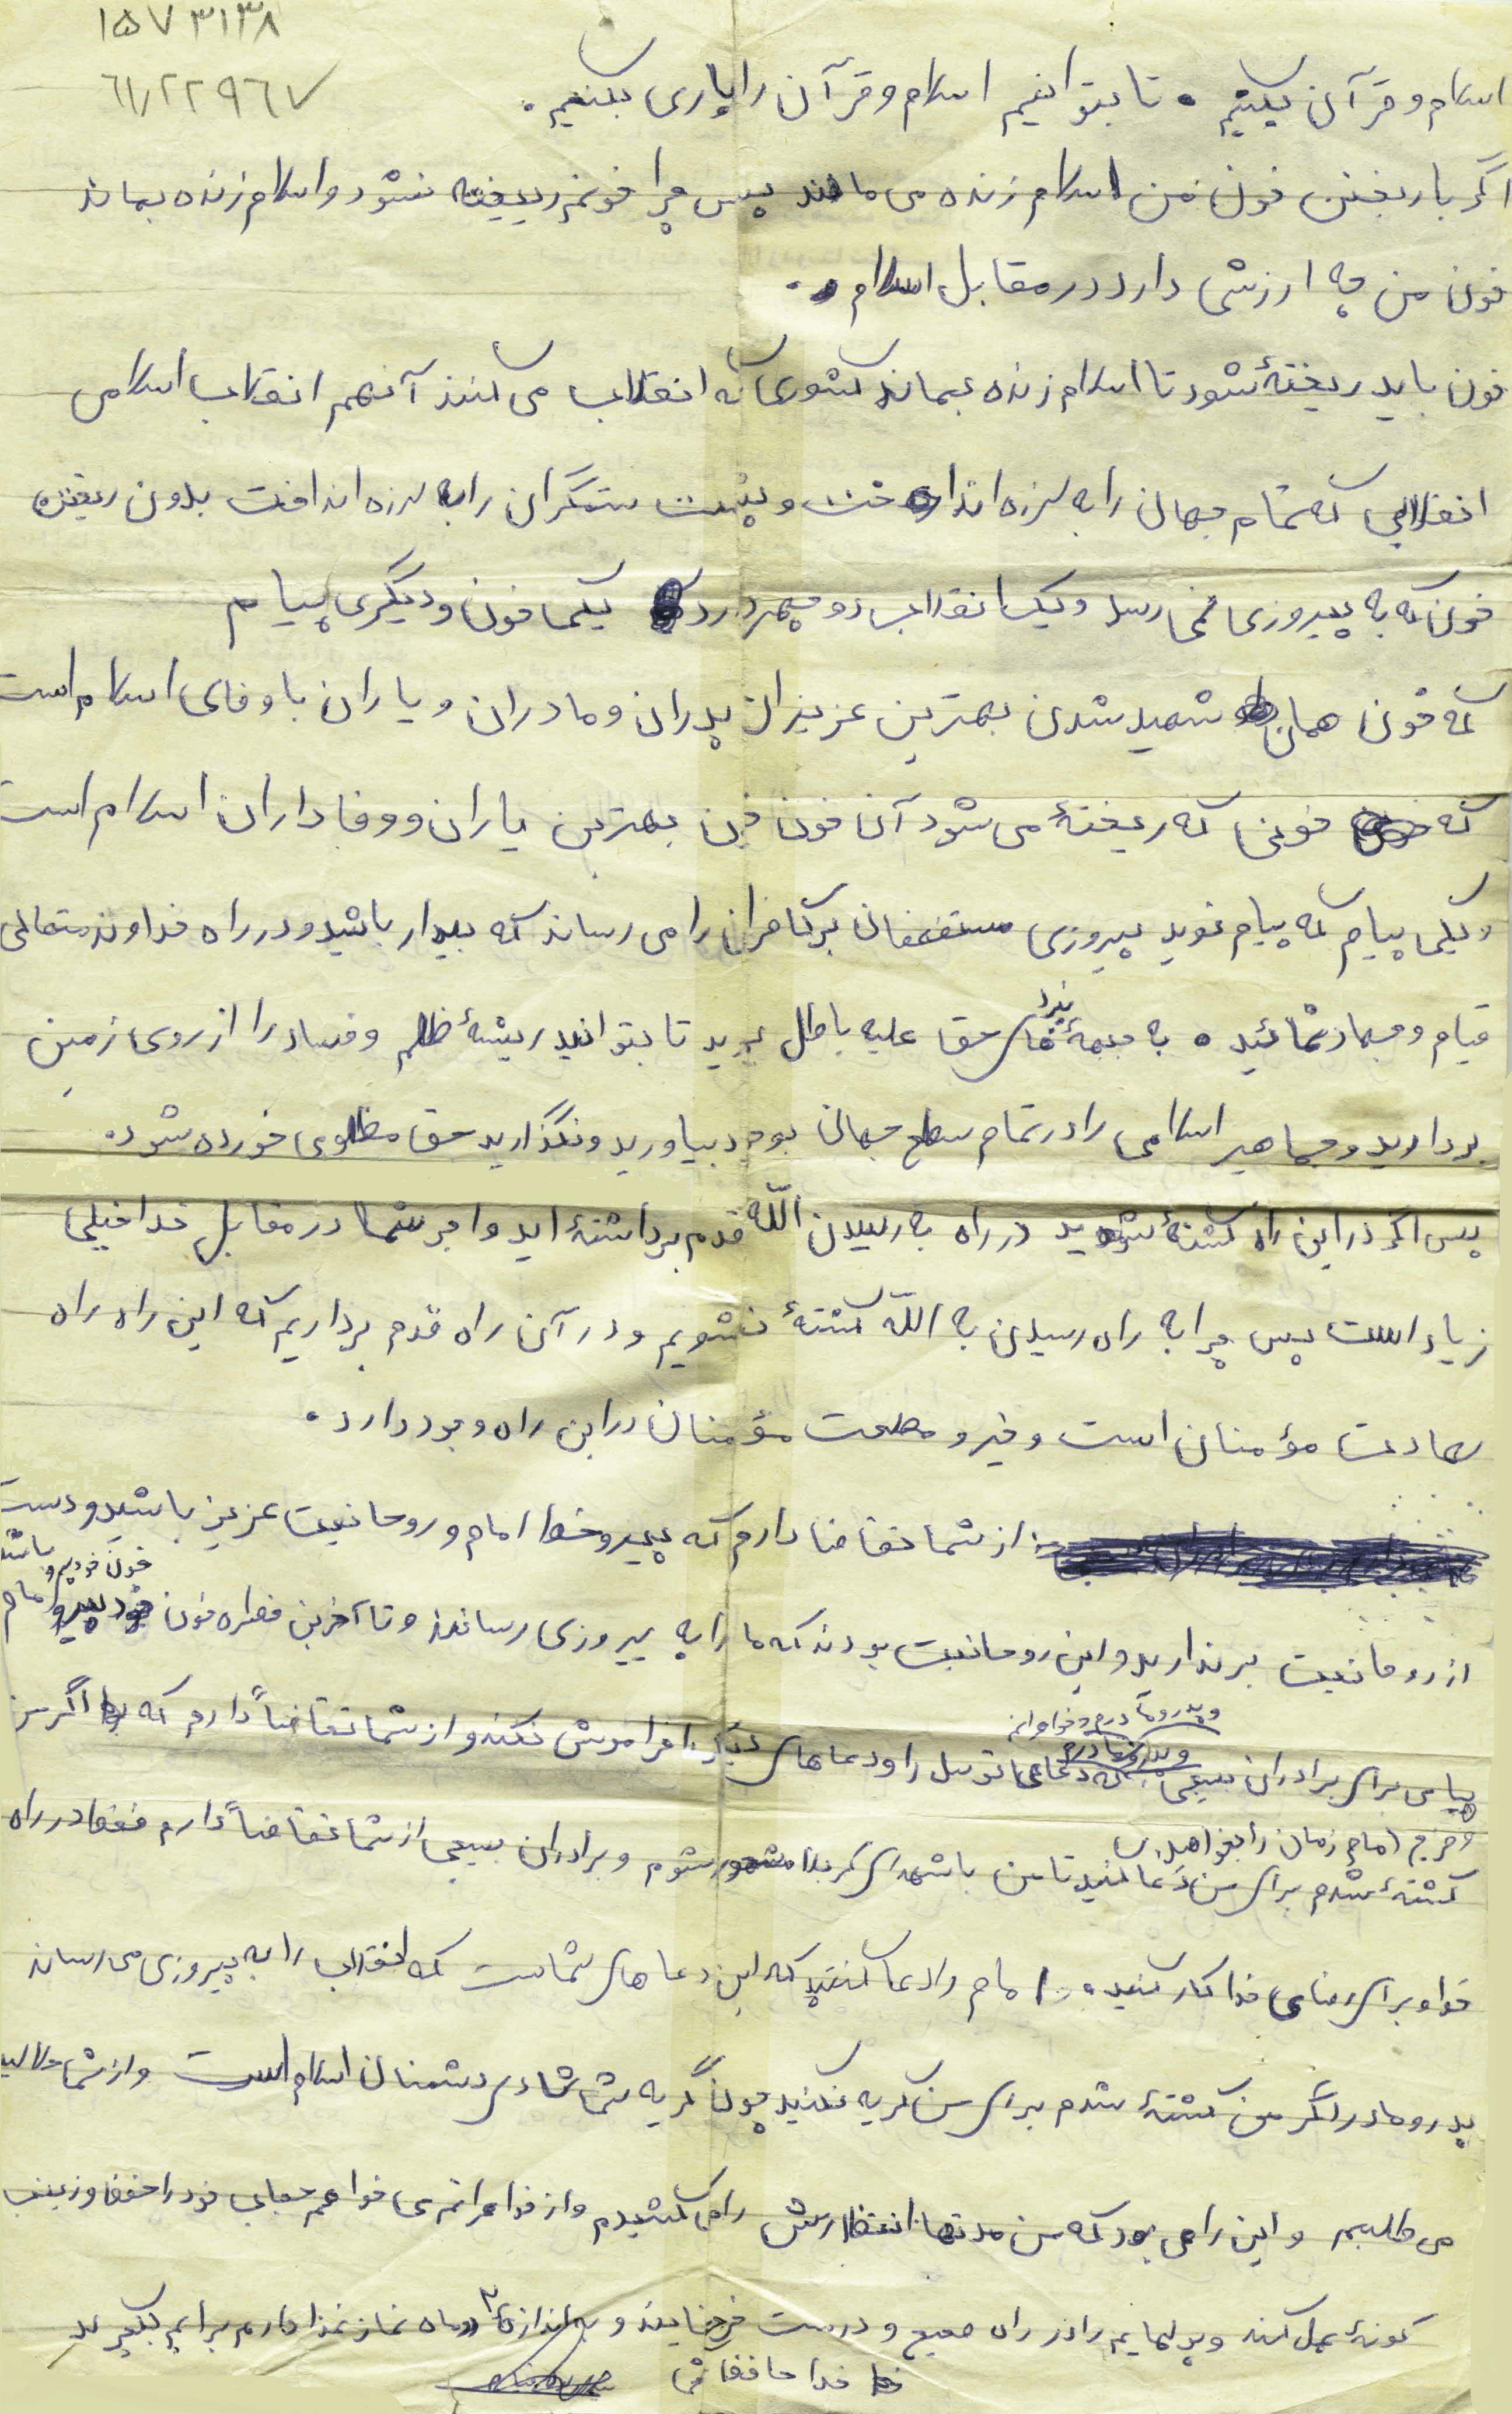 ۱۵۷۳۱۳۸
۶۱/۲۲۹۶۷
اسلام و قرآن بکنیم. تا بتوانیم اسلام و قرآن را یاری بکنیم.
اگر با ریختن خون من اسلام زنده می ماند پس چرا خونم ریخته نشود و اسلام زنده بماند
خون من چه ارزشی دارد در مقابل اسلام
خون باید ریختهٔ شود تا اسلام زنده بماند کشوری که انقلاب می کنند آنهم انقلاب اسلامی
انقلابی که تمام جهان را به لرزه انداخت و پشت ستمگران را به لرزه انداخت بدون ریختن
خون که به پیروزی نمی رسد و یک انقلاب دو چهره دارد یکی خون و دیگری پیام
که خون همان شهید شدن بهترین عزیزان پدران و مادران و یاران با وفای اسلام است
که خونی که ریختهٔ می شود آن خون بهترین یاران و وفاداران اسلام است
و یکی پیام که پیام نوید پیروزی مستضعفان بر کافران را می رساند که بیدار باشید و در راه خداوند متعالی
قیام و جهاد نمائید. به جبههٔ های نبرد حق علیه باطل بروید تا بتوانید ریشهٔ ظلم و فساد را از روی زمین
بردارید و جماهیر اسلامی را در تمام سطح جهان بوجود بیاورید و نگذارید حق مظلومی خورده شود.
پس اگر در این راه کشتهٔ شوید در راه به رسیدن اللّه قدم برداشتهٔ اید و اجر شما در مقابل خدا خیلی
زیاد است پس چرا به راه رسیدن به اللّه کشتهٔ نشویم و در آن راه قدم برداریم که این راه راه
سعادت مؤمنان است و خیر و مصلحت مؤمنان در این راه وجود دارد.
از شما تقاضا دارم که پیرو خط امام و روحانیت عزیز باشید و دست
از روحانیت برندارید و این روحانیت بودند که ما را به پیروزی رساندند و تا آخرین قطره خون خود پیرو امام
خون خود پیرو باشید
و پدر و مادرم و خواهرانم
پیامی برای برادران بسیجی که دعاهای توسل را و دعاهای دیگر را فراموش نکنند و از شما تقاضاً دارم که اگر من
و فرج امام زمان را بخواهید
کشتهٔ شدم برای من دعا کنید تا من با شهدای کربلا محشور شوم و برادران بسیجی از شما تقاضاً دارم فقط در راه
خدا و برای رضای خدا کار کنید. امام را دعا کنید که این دعاهای شماست که انقلاب را به پیروزی می رساند
پدر و مادر اگر من کشتهٔ شدم برای من گریه نکنید چون گریه شما شادی دشمنان اسلام است و از شما حلالیت
می طلبم و این راهی بود که من مدتها انتظارش را می کشیدم و از خواهرانم می خواهم حجاب خود را حفظ و زینب
گونهٔ عمل کنند و به اندازهٔ ۲ ماه نماز قضا دارم برایم بگیرید
خدا حافظ شما